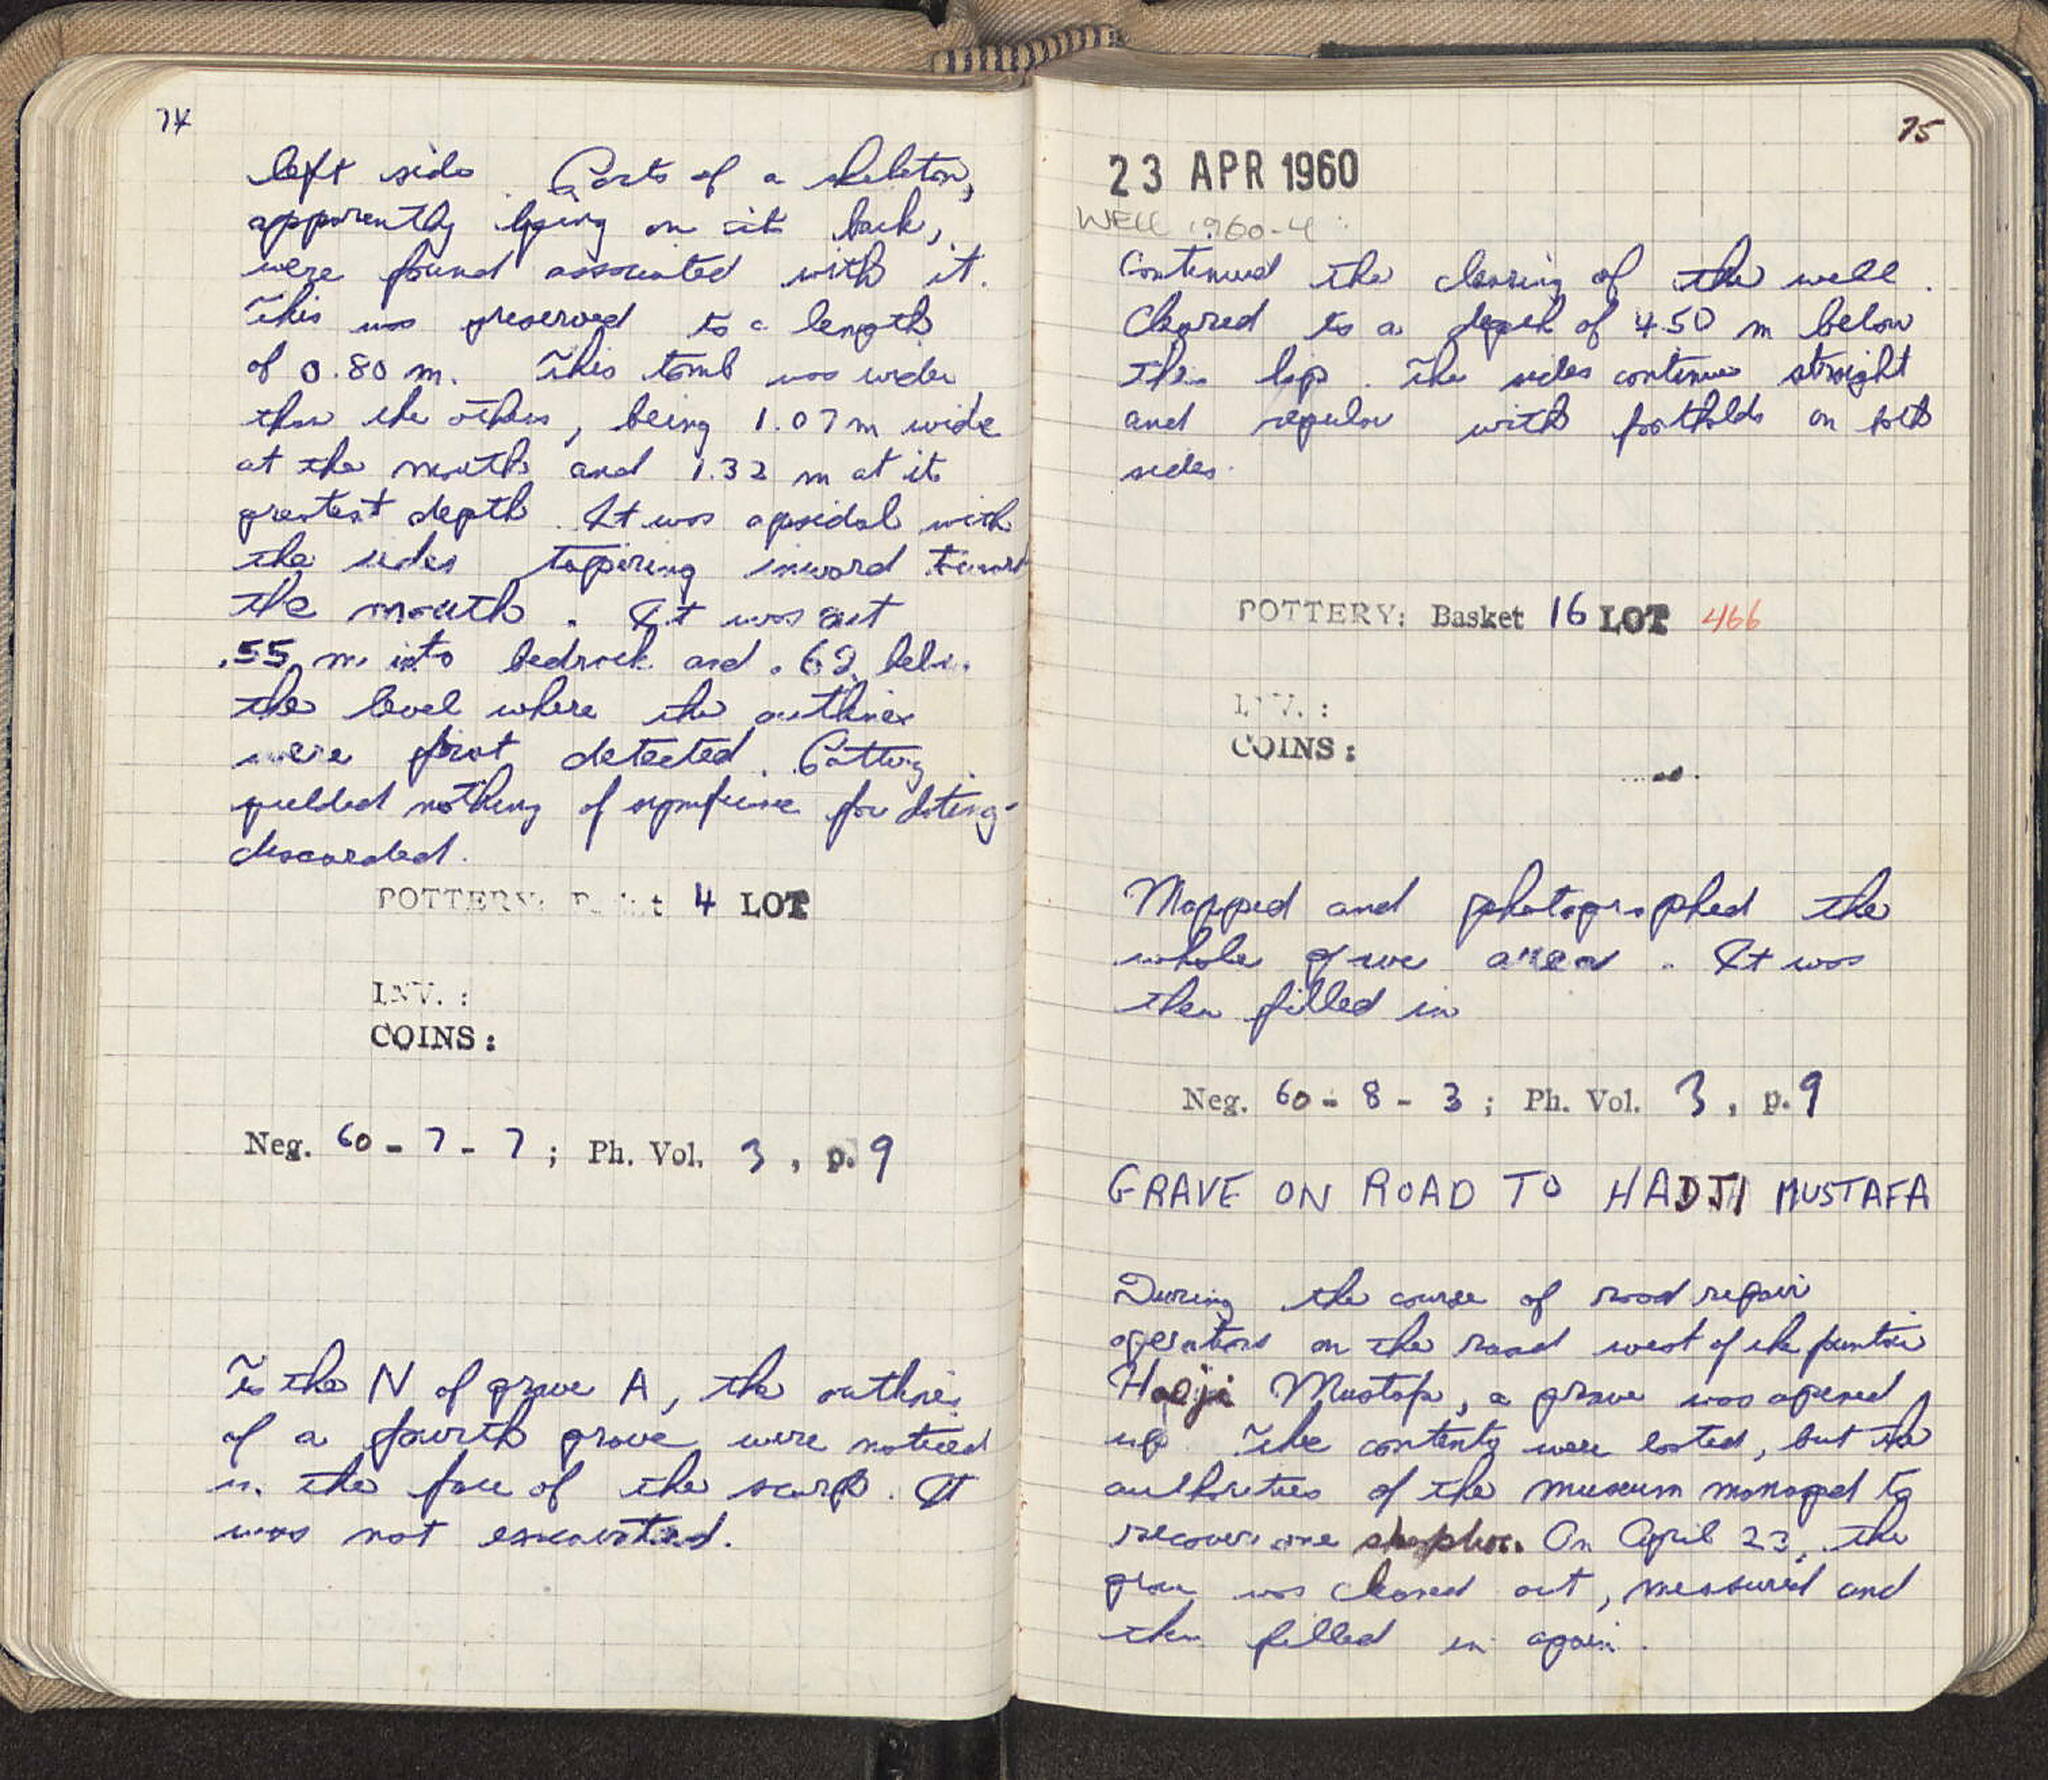 74
left side. Parts of a skeleton,
apparently lying on its back,
were found associated with it.
This was preserved to a length
of 0.80 m. This tomb was wider
than the others, being 1.07 m wide
at the mouth and 1.32 m at its
greatest depth. It was apsidal with
the sides tapering inward toward
the mouth. It was cut
.55 m. into bedrock and .62 below
the level where the outlines
were first detected. Pottery
yielded nothing of significance for dating -
discarded.
POTTERY: Basket 4 LOT
INV.:
COINS:
Neg. 60 - 7 - 7 ; Ph. Vol. 3 , p. 9
To the N of grave A, the outlines
of a fourth grave were noticed
in the face of the scarp. It
was not excavated.
75
23 APR 1960
WELL 1960-4:
Continued the clearing of the well.
Cleared to a depth of 4.50 m below
the lip. The sides continue straight
and regular with footholds on both
sides.
POTTERY: Basket 16 LOT 466
INV.:
COINS:
Mapped and photographed the
whole grave area. It was
then filled in
Neg. 60 - 8 - 3 ; Ph. Vol. 3 , p. 9
GRAVE ON ROAD TO HADJI MUSTAFA
During the course of road repair
operations on the road west of the fountain
Hadji Mustafa, a grave was opened
up. The contents were looted, but the
authorities of the museum managed to
recover one skyphos. On April 23, the
grave was cleaned out, measured and
then filled in again.